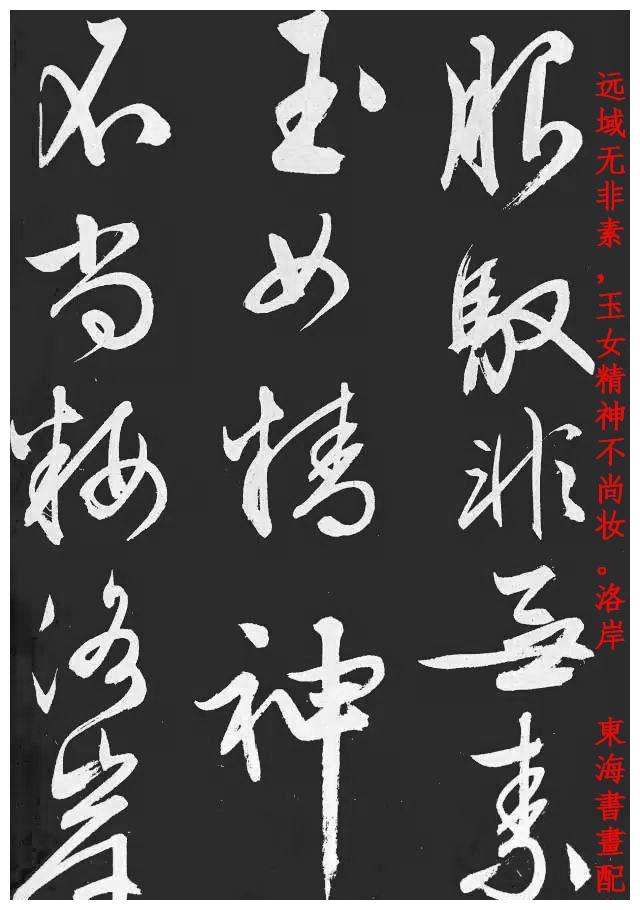 远域无非素，玉女精神不尚妆。洛岸
東海書畫配
服馭非無素
玉女精神
不尚粧洛岸